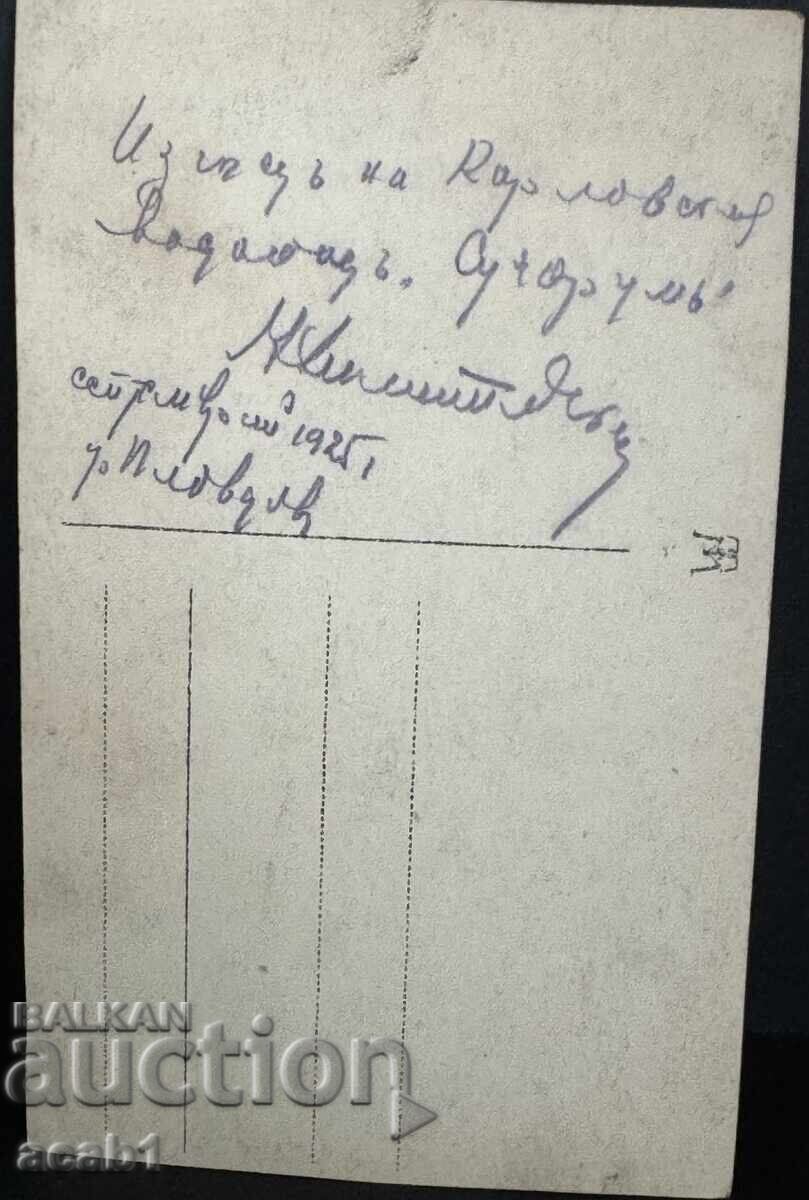 Изгледъ на Карловския
Водопадъ „Сучурумъ"
септемврий 1925 г.
гр Пловдив
BALKAN
auction
acab1